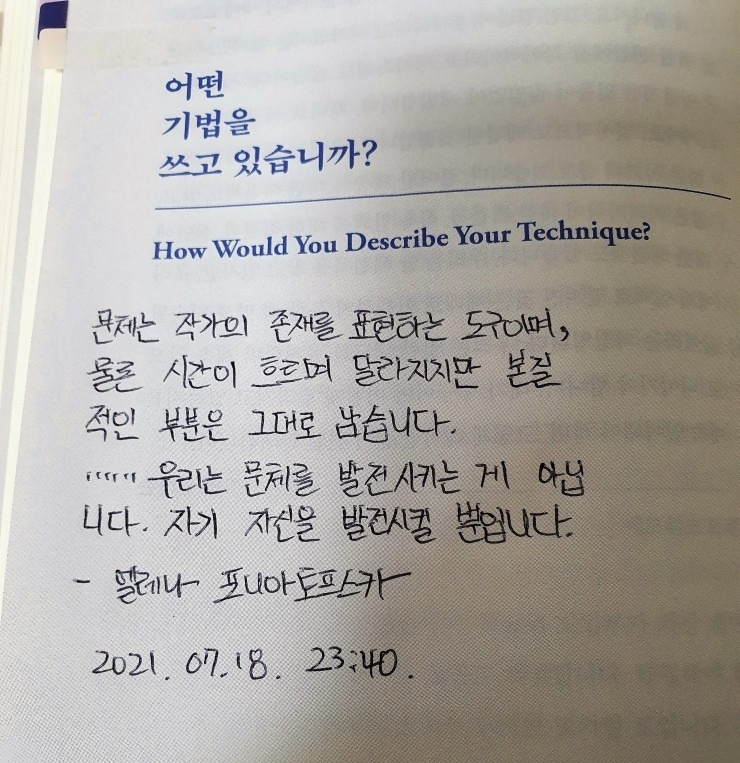 어떤
기법을
쓰고 있습니까?
How Would You Describe Your Technique?
문체는 작가의 존재를 표현하는 도구이며,
물론 시간이 흐르며 달라지지만 본질
적인 부분은 그대로 남습니다.
…… 우리는 문체를 발전시키는 게 아닙
니다. 자기 자신을 발전시킬 뿐입니다.
- 엘레나 포니아토프스카
2021. 07. 18. 23:40.